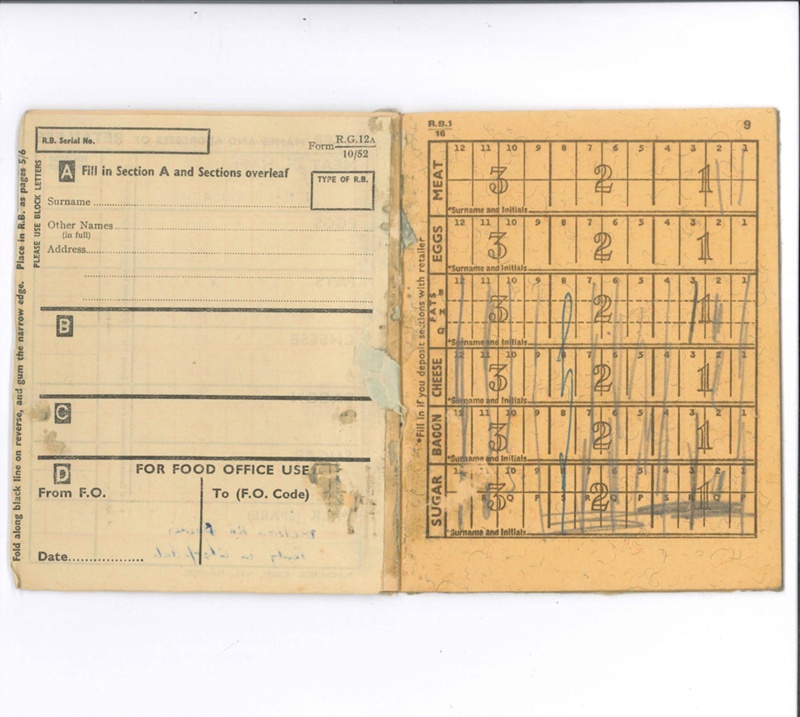 R.B. Serial No.
Form R.G.12A
10/52
A Fill in Section A and Sections overleaf
TYPE OF R.B.
Surname
Other Names
(in full)
Address
B
C
D FOR FOOD OFFICE USE
From F.O.
To (F.O. Code)
Date
Fold along black line on reverse, and gum the narrow edge. Place in R.B. as pages 5/6
PLEASE USE BLOCK LETTERS
R.B.1
16
9
*Fill in if you deposit sections with retailer
MEAT
12 11 10 9 8 7 6 5 4 3 2 1
3 2 1
*Surname and Initials
EGGS
12 11 10 9 8 7 6 5 4 3 2 1
3 2 1
*Surname and Initials
FATS
B
M
Q
12 11 10 9 8 7 6 5 4 3 2 1
3 2 1
*Surname and Initials
CHEESE
12 11 10 9 8 7 6 5 4 3 2 1
3 2 1
*Surname and Initials
BACON
12 11 10 9 8 7 6 5 4 3 2 1
3 2 1
*Surname and Initials
SUGAR
12 11 10 9 8 7 6 5 4 3 2 1
R Q P S R Q P S R Q P
3 2 1
*Surname and Initials